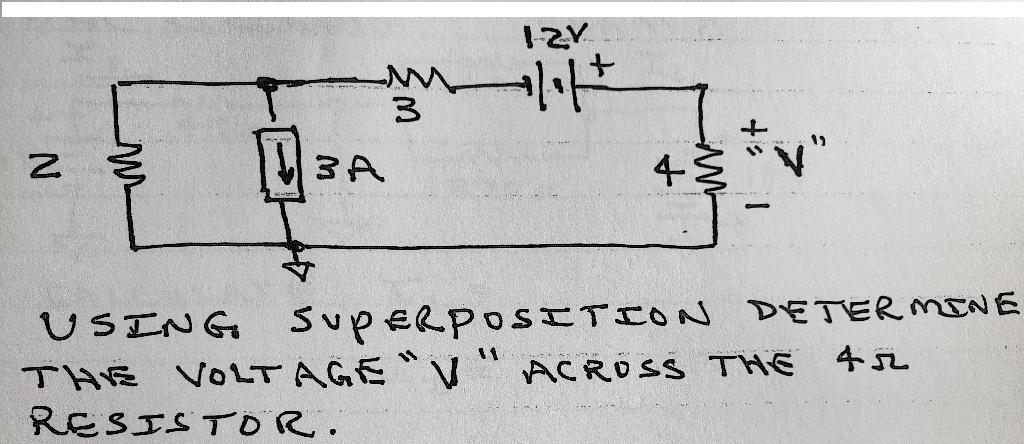 12V
+
3
2
3A
4
+
"V"
-
USING SUPERPOSITION DETERMINE
THE VOLTAGE "V" ACROSS THE 4Ω
RESISTOR.